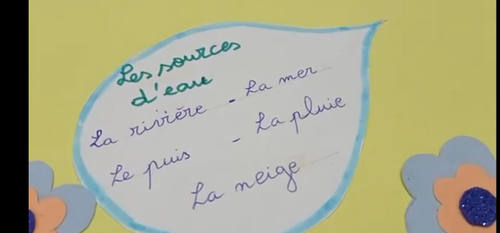 Les sources
d'eau
La rivière - La mer
Le puis - La pluie
La neige